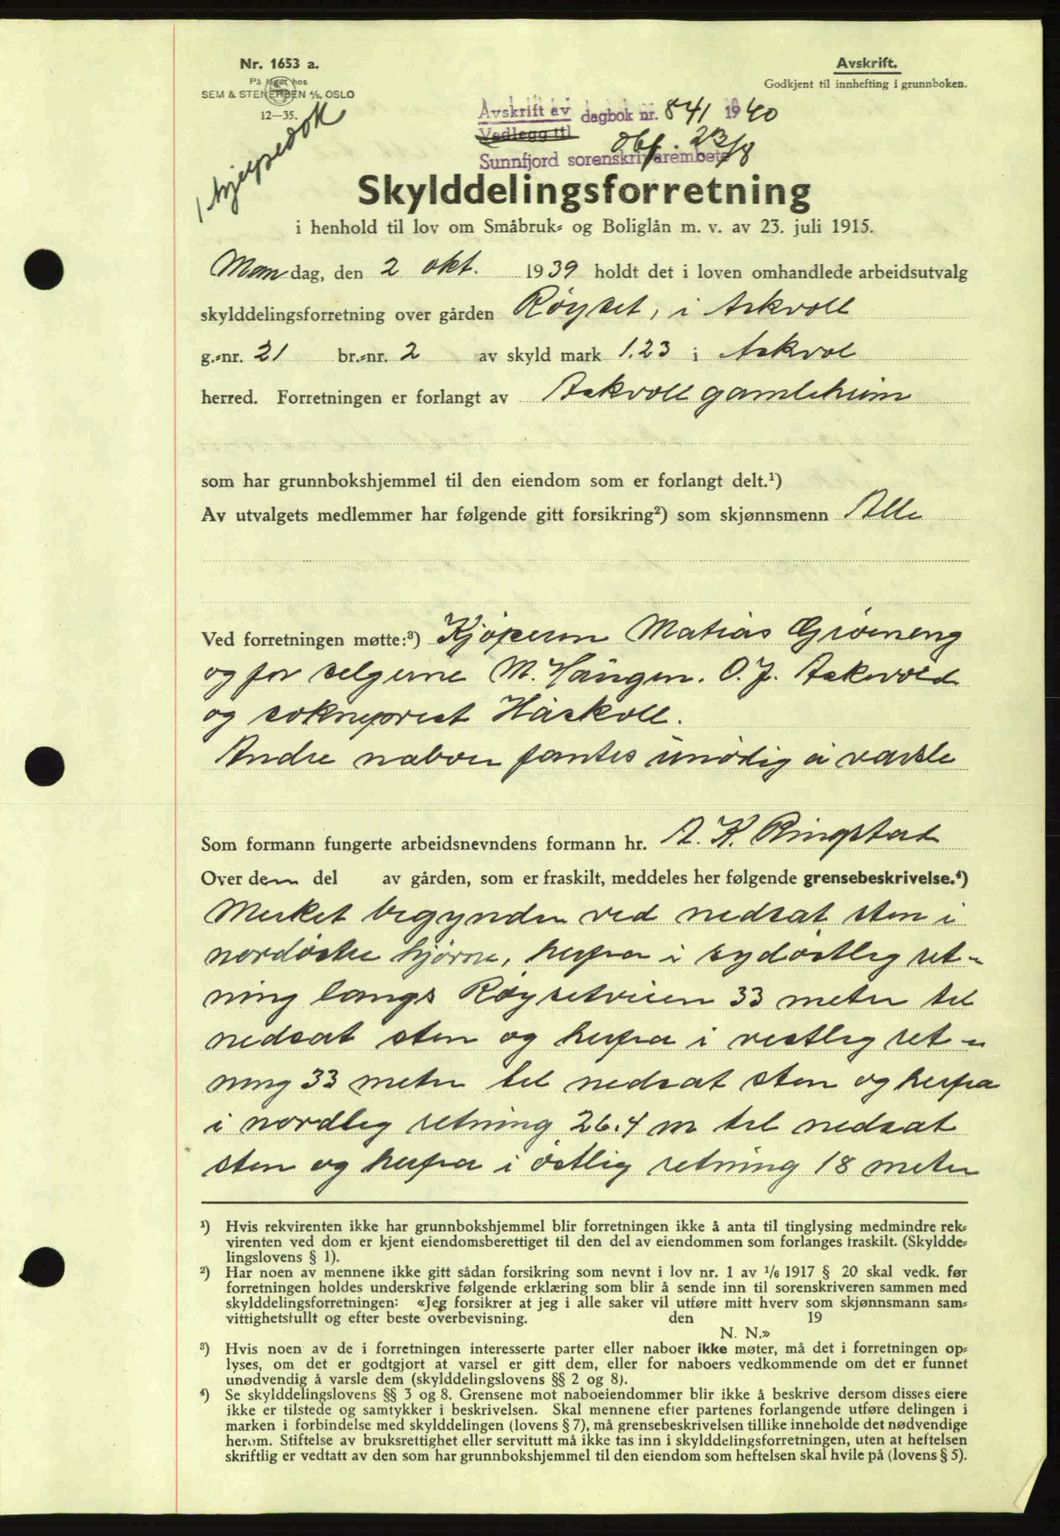 Nr. 1653 a.
På lager hos
SEM & STENERSEN A/S, OSLO
12—35.
1 hjelpedok
Avskrift.
Godkjent til innhefting i grunnboken.
Avskrift av dagbok nr. 841 1940
Vedlegg til
Sunnfjord sorenskriverembete 23/8
Skylddelingsforretning
i henhold til lov om Småbruk- og Boliglån m. v. av 23. juli 1915.
Mandag, den 2 okt. 1939 holdt det i loven omhandlede arbeidsutvalg
skylddelingsforretning over gården Røyset, i Askvoll
g.-nr. 21 br.-nr. 2 av skyld mark 1.23 i Askvol
herred. Forretningen er forlangt av Askvoll gamleheim
som har grunnbokshjemmel til den eiendom som er forlangt delt.¹)
Av utvalgets medlemmer har følgende gitt forsikring²) som skjønnsmenn Alle
Ved forretningen møtte:³) Kjøperen Matias Grøneng
og for selgerne M. Haugen. O. J. Askvold
og sokneprest Håskoll.
Andre naboer fantes unødig å varsle
Som formann fungerte arbeidsnevndens formann hr. A. K. Ringstad
Over dem del av gården, som er fraskilt, meddeles her følgende grensebeskrivelse.⁴)
Merket begynder ved nedsat sten i
nordøstre hjørne, herfra i sydøstlig ret-
ning langs Røysetveien 33 meter til
nedsat sten og herfra i vestlig ret-
ning 33 meter til nedsat sten og herfra
i nordlig retning 26.4 m til nedsat
sten og herfra i østlig retning 18 meter
¹) Hvis rekvirenten ikke har grunnbokshjemmel blir forretningen ikke å anta til tinglysing medmindre rek-
virenten ved dom er kjent eiendomsberettiget til den del av eiendommen som forlanges fraskilt. (Skyldde-
lingslovens § 1).
²) Har noen av mennene ikke gitt sådan forsikring som nevnt i lov nr. 1 av ¹/₆ 1917 § 20 skal vedk. før
forretningen holdes underskrive følgende erklæring som blir å sende inn til sorenskriveren sammen med
skylddelingsforretningen: «Jeg forsikrer at jeg i alle saker vil utføre mitt hverv som skjønnsmann sam-
vittighetsfullt og efter beste overbevisning. den 19
N. N.»
³) Hvis noen av de i forretningen interesserte parter eller naboer ikke møter, må det i forretningen op-
lyses, om det er godtgjort at varsel er gitt dem, eller for naboers vedkommende om det er funnet
unødvendig å varsle dem (skylddelingslovens §§ 2 og 8).
⁴) Se skylddelingslovens §§ 3 og 8. Grensene mot naboeiendommer blir ikke å beskrive dersom disses eiere
ikke er tilstede og samtykker i beskrivelsen. Skal mennene efter partenes forlangende utføre delingen i
marken i forbindelse med skylddelingen (lovens § 7), må grensebeskrivelsen tillike inneholde det nødvendige
herom. Stiftelse av bruksrettighet eller servitutt må ikke tas inn i skylddelingsforretningen, uten at heftelsen
skriftlig er vedtatt av den som har grunnbokshjemmel til den eiendom som heftelsen skal hvile på (lovens § 5).